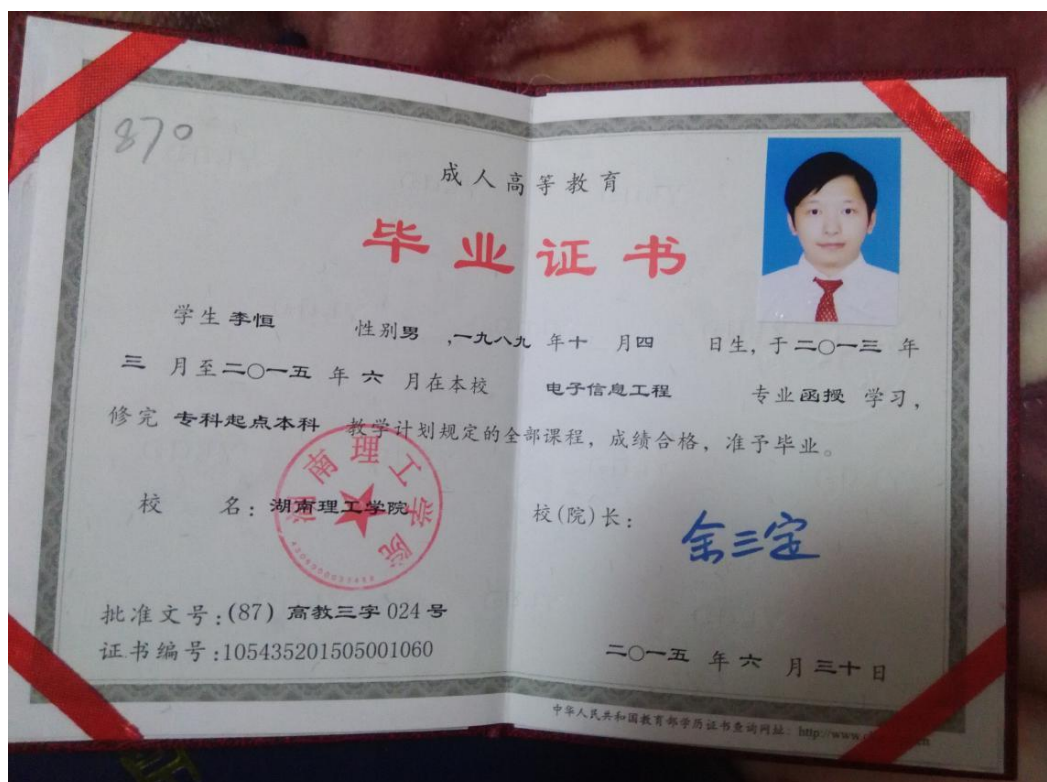 870
成人高等教育
毕业证书
学生 李恒 性别男 ,一九八九 年十 月四 日生, 于二〇一三 年
三 月至二〇一五 年 六 月在本校 电子信息工程 专业 函授 学习,
修完 专科起点本科 教学计划规定的全部课程, 成绩合格, 准予毕业。
湖南理工学院
校 名: 湖南理工学院 校(院)长: 余三定
批准文号:(87) 高教三字 024 号
证书编号:105435201505001060
二〇一五 年 六 月 三十 日
中华人民共和国教育部学历证书查询网址: http://www.